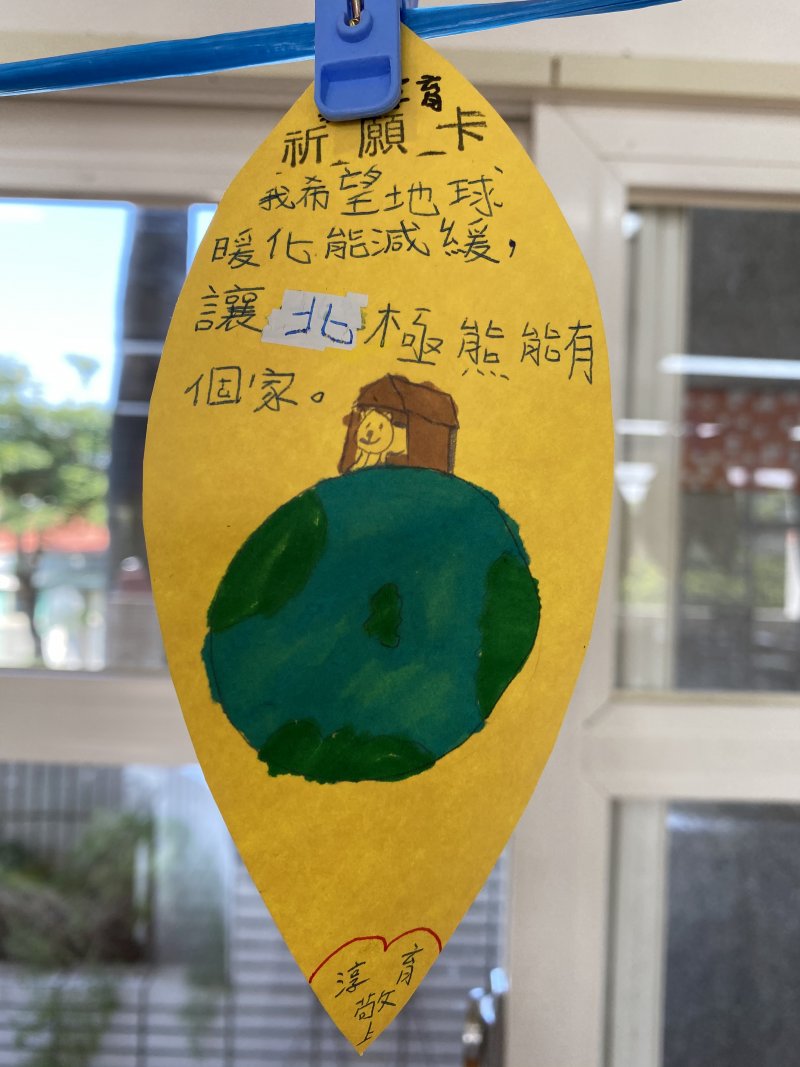 育
祈願卡
我希望地球
暖化能減緩，
讓北極熊能有
個家。
淳育
敬上